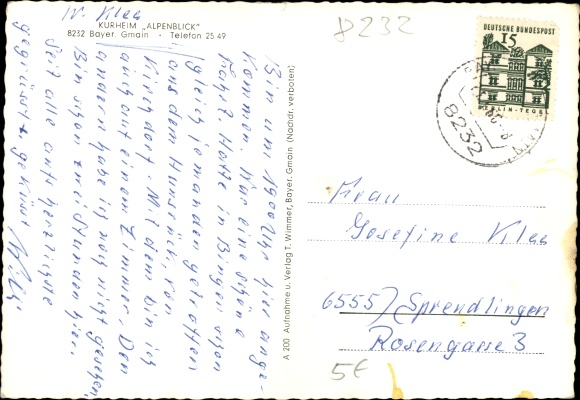 W. Klee
KURHEIM „ALPENBLICK"
8232 Bayer. Gmain · Telefon 25 49
8232
DEUTSCHE BUNDESPOST
15
BERLIN-TEGEL
8232
Bin um 1900 Uhr hier ange-
kommen. War eine schöne
Fahrt. Hatte in Bingen schon
gleich jemanden getroffen
aus dem Hunsrück, von
Kirchdorf. Mit dem bin ich
auch auf einem Zimmer. Den
andern habe ich noch nicht gesehen
Bin schon zwei Stunden hier.
Seit alle aufs herzlichste
gegrüsst & geküsst
Willi
A 200 Aufnahme u. Verlag T. Wimmer, Bayer. Gmain (Nachdr. verboten)
Frau
Josefine Klee
6555 Sprendlingen
Rosengasse 3
5€